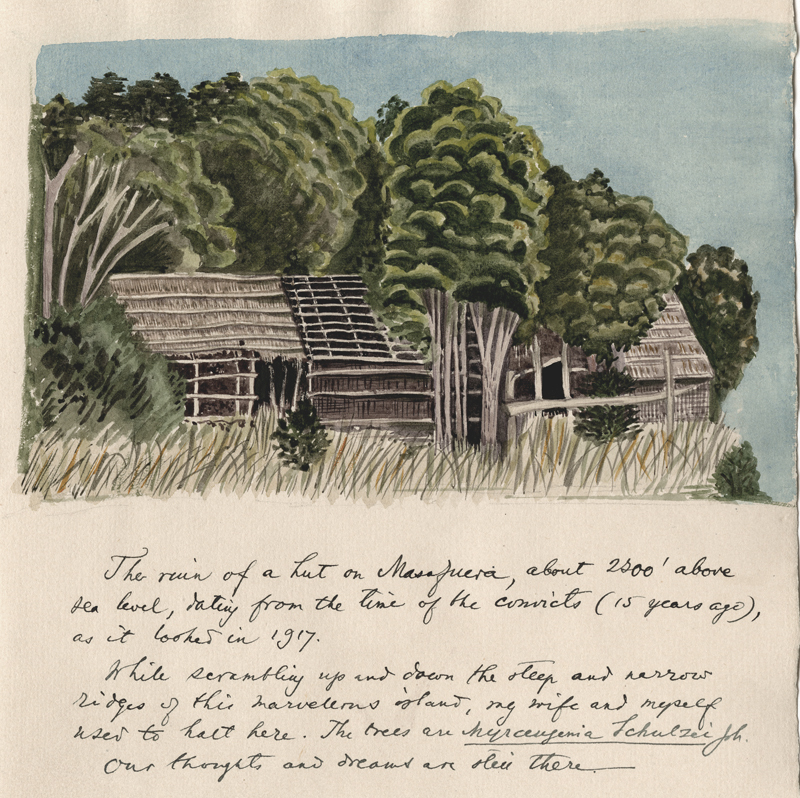 The ruin of a hut on Masafuera, about 2300' above
sea level, dating from the time of the convicts (15 years ago),
as it looked in 1917.
While scrambling up and down the steep and narrow
ridges of this marvellous island, my wife and myself
used to halt here. The trees are Myrceugenia Schulzei Joh.
Our thoughts and dreams are still there.